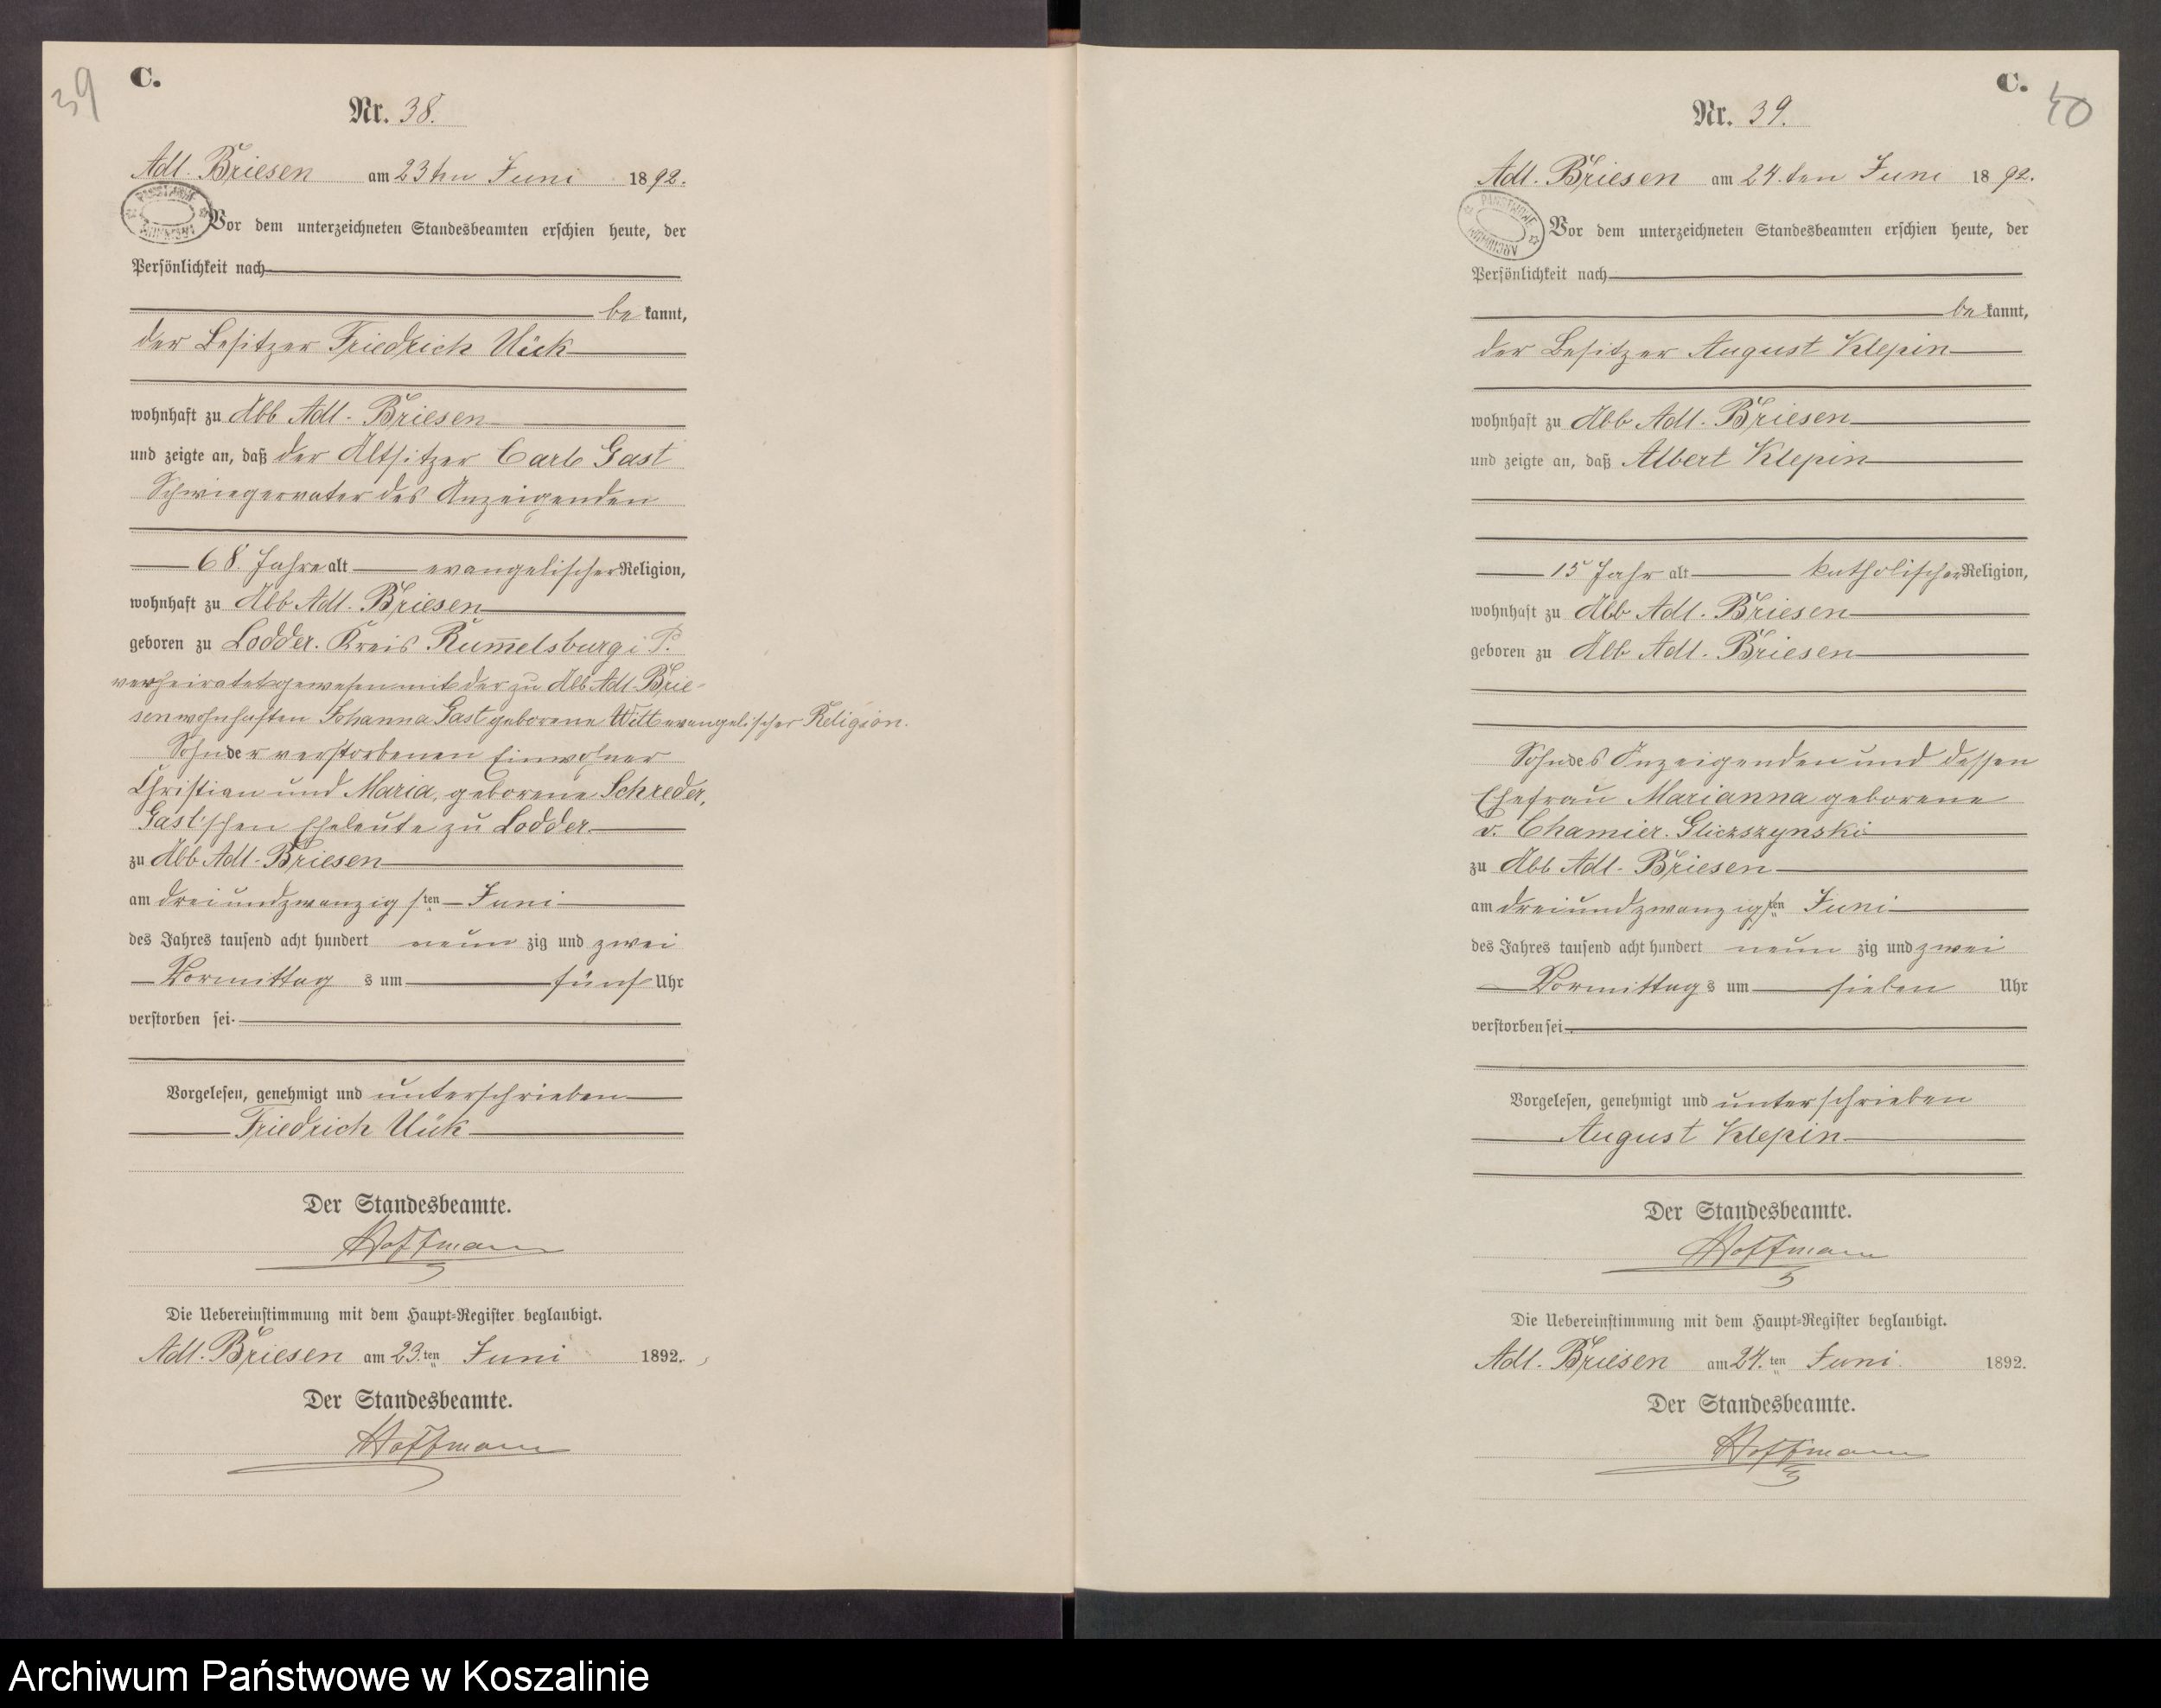 39
C.
Nr. 38.
Adl. Briesen am 23ten Juni 1892.
Vor dem unterzeichneten Standesbeamten erschien heute, der
Persönlichkeit nach
be kannt,
der Besitzer Friedrich Uück
wohnhaft zu Abb Adl. Briesen
und zeigte an, daß der Altsitzer Carl Gast
Schwiegervater des Anzeigenden
68 Jahre alt evangelischer Religion,
wohnhaft zu Abb Adl. Briesen
geboren zu Lodder. Kreis Rum̅elsburg i P.
verheiratet gewesen mit der zu Abb Adl. Brie-
sen wohnhaften Johanna Gast geborene Witt evangelischer Religion.
Sohn der verstorbenen Einwohner
Christian und Maria, geborene Schreder,
Gast'schen Eheleute zu Lodder.
zu Abb Adl. Briesen
am dreiundzwanzigsten Juni
des Jahres tausend acht hundert neun zig und zwei
Vormittag s um fünf Uhr
verstorben sei.
Vorgelesen, genehmigt und unterschrieben
Friedrich Uük
Der Standesbeamte.
Hoffmann
Die Uebereinstimmung mit dem Haupt=Register beglaubigt.
Adl. Briesen am 23.ten Juni 1892.
Der Standesbeamte.
Hoffmann
C.
40
Nr. 39.
Adl. Briesen am 24.ten Juni 1892.
PAŃSTWOWE ARCHIWUM
Vor dem unterzeichneten Standesbeamten erschien heute, der
Persönlichkeit nach
be kannt,
der Besitzer August Klepin
wohnhaft zu Abb Adl. Briesen
und zeigte an, daß Albert Klepin
15 Jahr alt katholischer Religion,
wohnhaft zu Abb Adl. Briesen
geboren zu Abb Adl. Briesen
Sohn des Anzeigenden und dessen
Ehefrau Marianna geborene
v. Chamier. Gliczszynski
zu Abb Adl. Briesen
am dreiundzwanzigsten Juni
des Jahres tausend acht hundert neun zig und zwei
Vormittag s um sieben Uhr
verstorben sei.
Vorgelesen, genehmigt und unterschrieben
August Klepin
Der Standesbeamte.
Hoffmann
Die Uebereinstimmung mit dem Haupt=Register beglaubigt.
Adl. Briesen am 24.ten Juni. 1892.
Der Standesbeamte.
Hoffmann
Archiwum Państwowe w Koszalinie